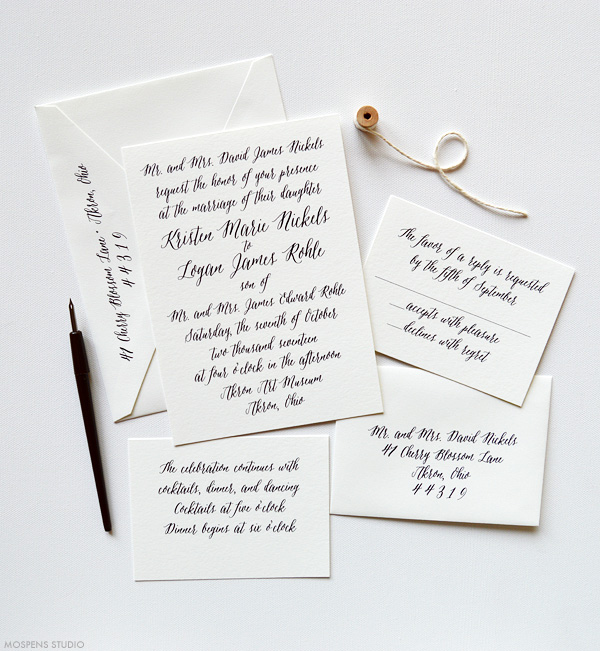 Mr. and Mrs. David James Nickels
request the honor of your presence
at the marriage of their daughter
Kristen Marie Nickels
to
Logan James Rohle
son of
Mr. and Mrs. James Edward Rohle
Saturday, the seventh of October
two thousand seventeen
at four o'clock in the afternoon
Akron Art Museum
Akron, Ohio
41 Cherry Blossom Lane • Akron, Ohio
44319
The favor of a reply is requested
by the fifth of September
accepts with pleasure
declines with regret
Mr. and Mrs. David Nickels
41 Cherry Blossom Lane
Akron, Ohio
44319
The celebration continues with
cocktails, dinner, and dancing
Cocktails at five o'clock
Dinner begins at six o'clock
MOSPENS STUDIO